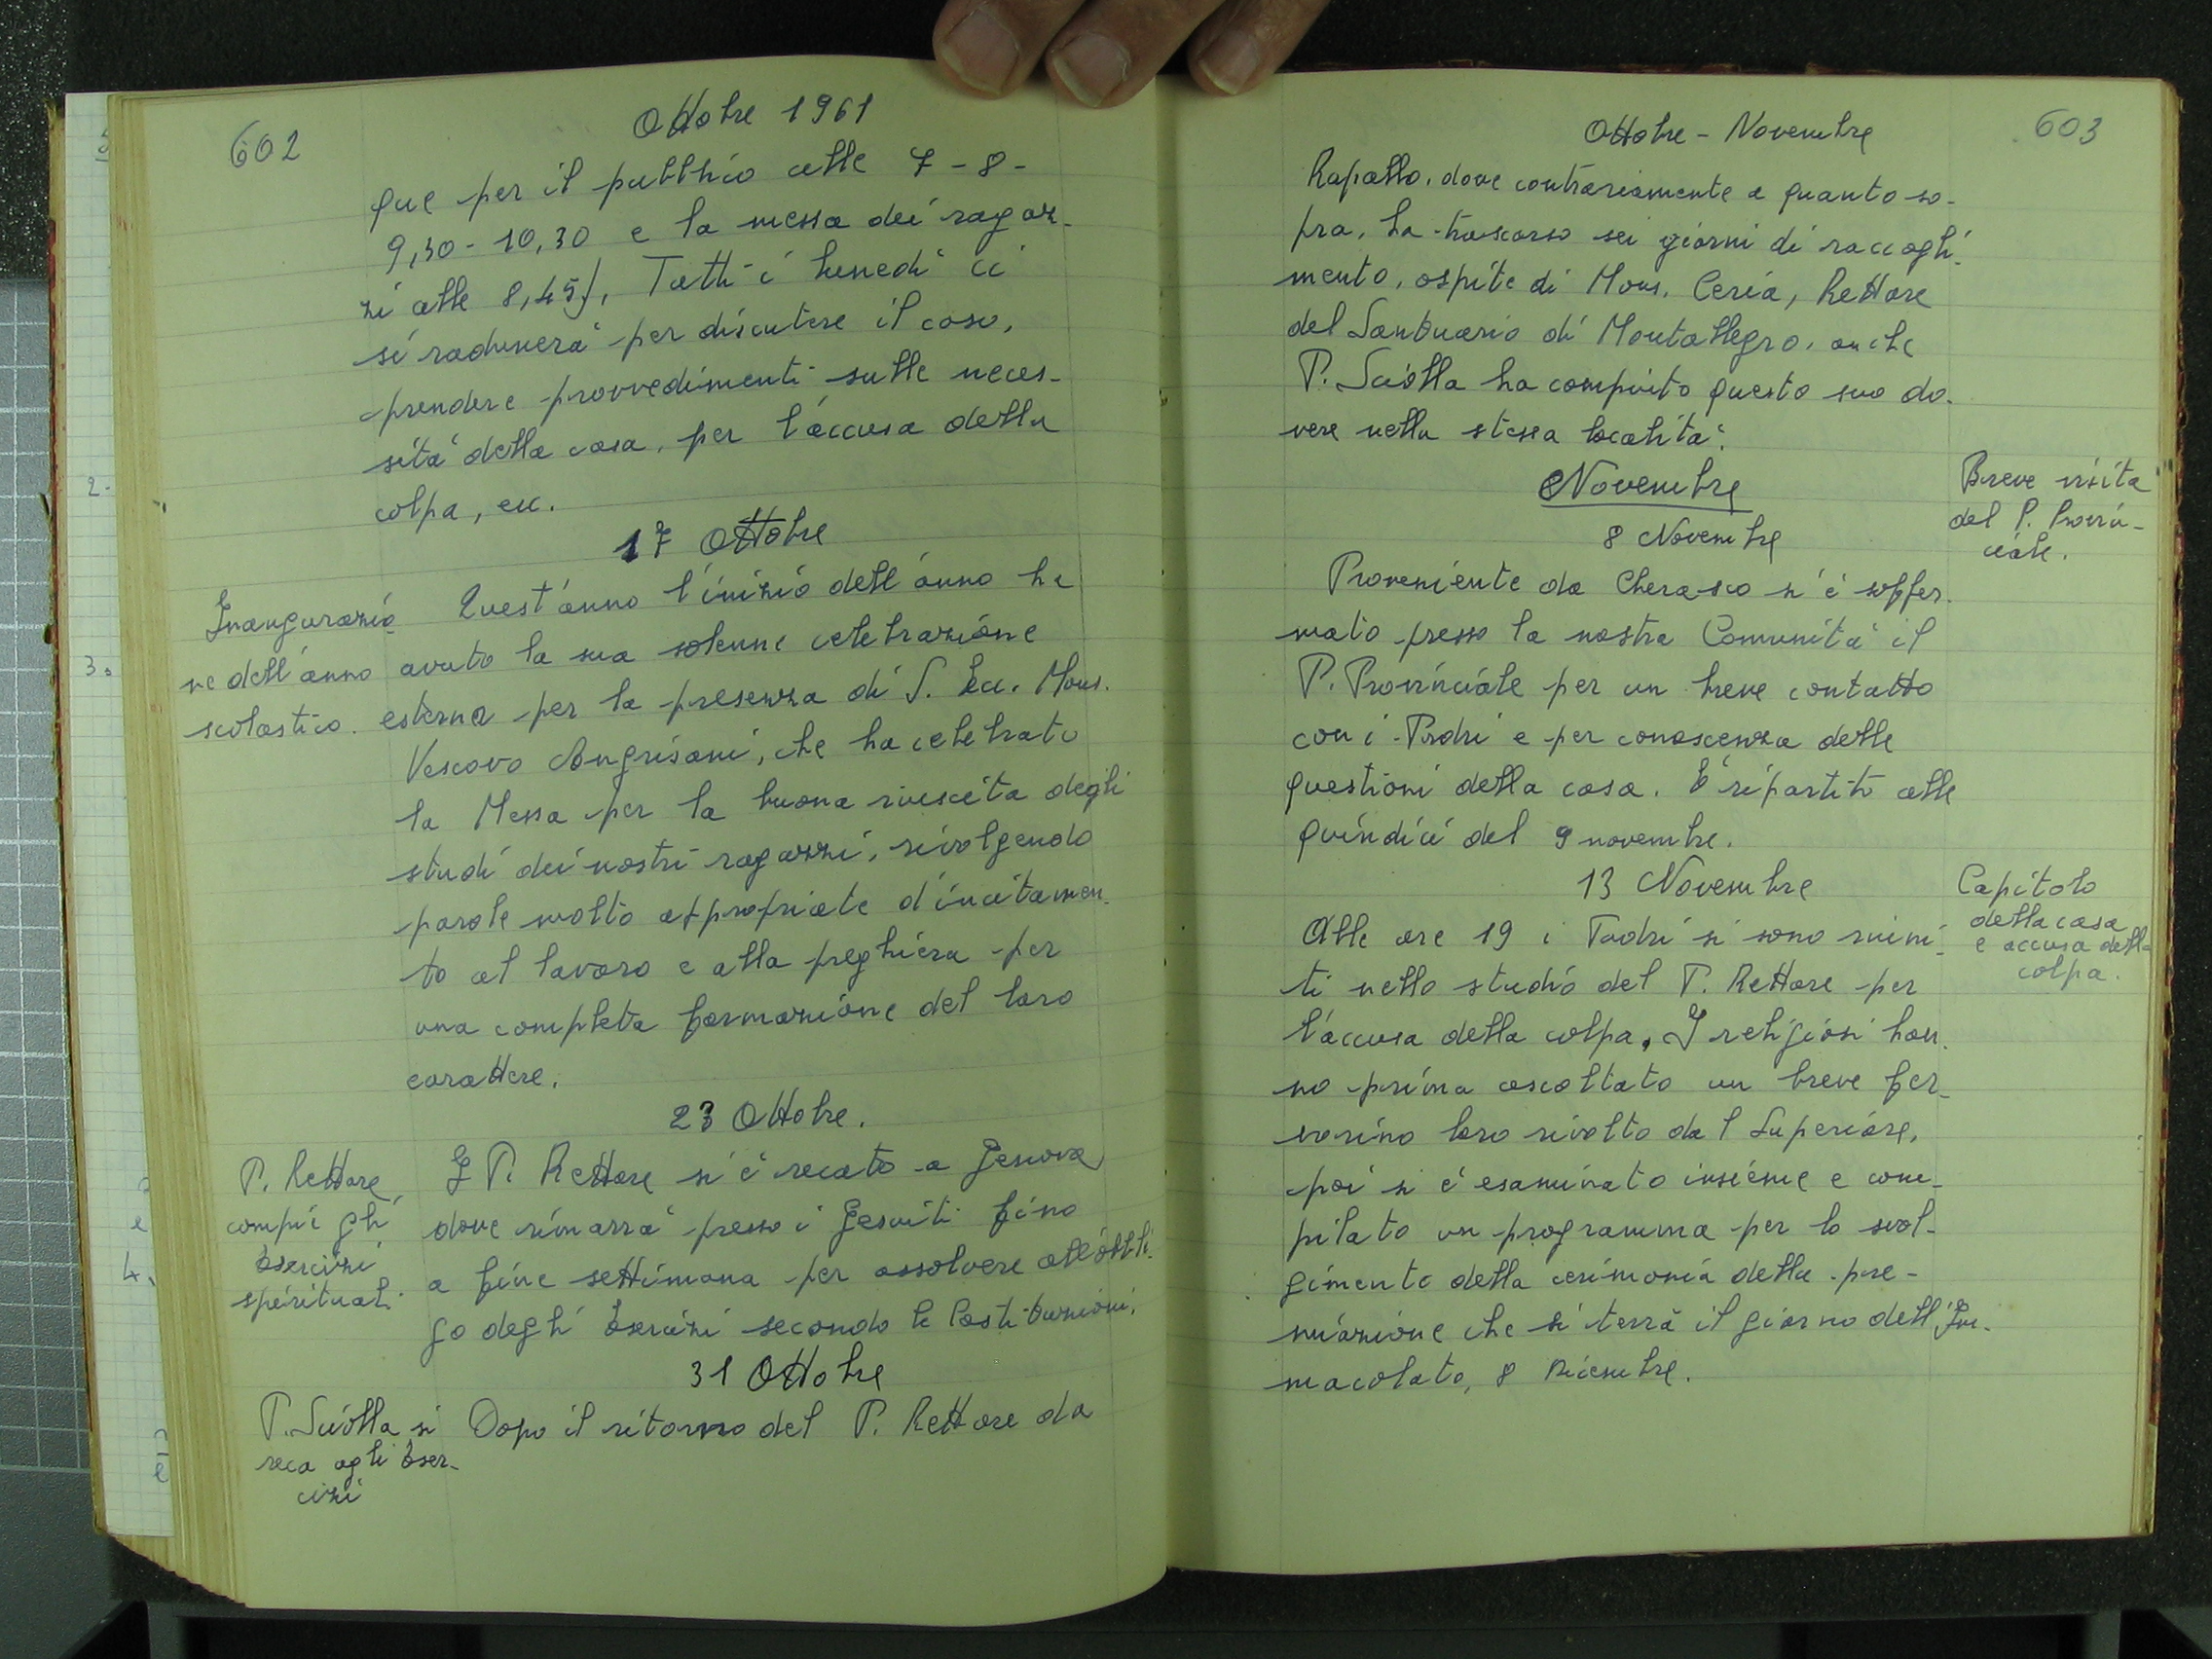 602
Ottobre 1961
que per il pubblico alle 7 - 8 -
9,30 - 10,30 e la messa dei ragaz-
zi alle 8,45). Tutti i lunedì ci
si radunerà per discutere il caso,
prendere provvedimenti sulle neces-
sità della casa, per l'accusa della
colpa, ecc.
17 Ottobre
Inaugurazio-
ne dell'anno
scolastico.
Quest'anno l'inizio dell'anno ha
avuto la sua solenne celebrazione
esterna per la presenza di S. Ecc. Mons.
Vescovo Angrisani, che ha celebrato
la Messa per la buona riuscita degli
studi dei nostri ragazzi, rivolgendo
parole molto appropriate d'incitamen-
to al lavoro e alla preghiera per
una completa formazione del loro
carattere.
23 Ottobre.
P. Rettore
compie gli
Esercizi
spirituali.
Il P. Rettore si è recato a Genova
dove rimarrà presso i Gesuiti fino
a fine settimana per assolvere all'obbli-
go degli Esercizi secondo le Costituzioni.
31 Ottobre
P. Sciolla si
reca agli Eser-
cizi
Dopo il ritorno del P. Rettore da
603
Ottobre - Novembre
Rapallo, dove contrariamente a quanto so-
pra, ha trascorso sei giorni di raccogli-
mento, ospite di Mons. Ceria, Rettore
del Santuario di Montallegro, anche
P. Sciolla ha compiuto questo suo do-
vere nella stessa località.
Novembre
8 Novembre
Breve visita
del P. Provin-
ciale.
Proveniente da Cherasco si è soffer-
mato presso la nostra Comunità il
P. Provinciale per un breve contatto
con i Padri e per conoscenza delle
questioni della casa. È ripartito alle
quindici del 9 novembre.
13 Novembre
Capitolo
della casa
e accusa della
colpa.
Alle ore 19 i Padri si sono riuni-
ti nello studio del P. Rettore per
l'accusa della colpa. I religiosi han-
no prima ascoltato un breve fer-
vorino loro rivolto dal Superiore,
poi si è esaminato insieme e com-
pilato un programma per lo svol-
gimento della cerimonia della pre-
miazione che si terrà il giorno dell'Im-
macolata, 8 Dicembre.